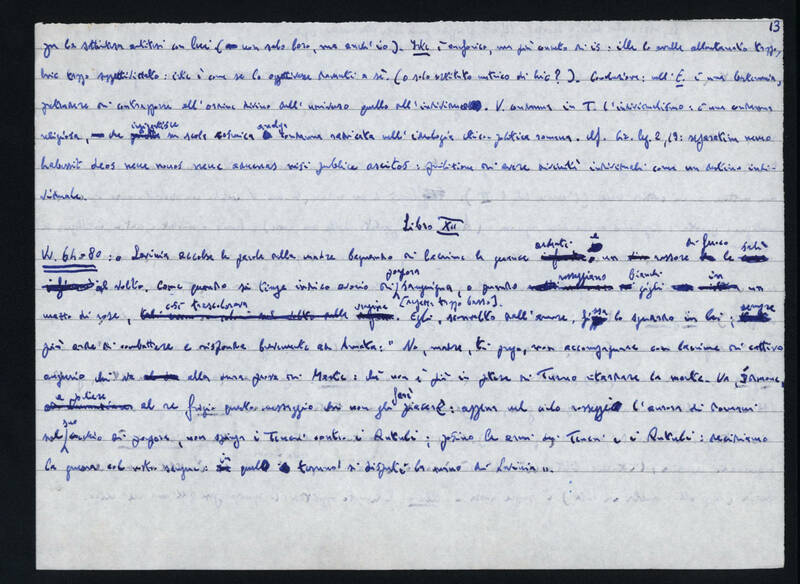 13
per la struttura antitesi con luci ( non solo loro, ma anch'io). Iste è enfonico, ma più consueto di is: ille lo avrebbe allontanato troppo,
hic troppo : iste è come se lo davanti a sé. (o solo sostituto metrico di hic?). Conclusione: nell'E. è una bestemmia,
pretendere di contrapporre all'ordine divino dell'universo quello dell'individuo. V. condanna in T. l'individualismo: è una condanna
religiosa, che ingigantisce su scala cosmica analoga condanna radicata nell'ideologia etico-politica romana. cfr. Cic. leg. 2, 19: separatim nemo
habessit deos neve novos neve advenas nisi publice adscitos: proibizione di avere divinità individuali come un destino indi-
viduale.
Libro XII
Vv. 64-80: Lavinia accolse le parole della madre bagnando di lacrime le guance ardenti e un rossore di fuoco le salì
al volto. Come quando si tinge indico avorio di porpora sanguigna, o quando rosseggiano bianchi gigli in un
mazzo di rose, così trascolorava vergine [ troppo basso]. Egli, sconvolto dall'amore, fissa lo sguardo in lei; sempre
più arde di combattere e risponde brevemente ad Amata: "No, madre, ti prego, non accompagnare con lacrime di cattivo
augurio chi va alla dura prova di Marte: ché non è più in potere di Turno ritardare la morte. Va, Idmone,
e riferisci al re frigio questo messaggio che non gli sarà piacere: appena nel cielo rosseggi l'aurora di domani
sul suo cocchio di porpora, non spinga i Teucri contro i Rutuli; posino le armi dei Teucri e i Rutuli: decidiamo
la guerra col nostro sangue: in quel terreno si disputi la mano di Lavinia".